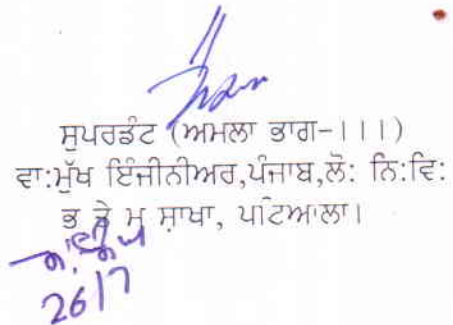 ਸੁਪਰਡੰਟ (ਅਮਲਾ ਭਾਗ-।।।)
ਵਾ:ਮੁੱਖ ਇੰਜੀਨੀਅਰ,ਪੰਜਾਬ,ਲੋ: ਨਿ:ਵਿ:
ਭ ਤੇ ਮ ਸ਼ਾਖਾ, ਪਟਿਆਲਾ।
26/7